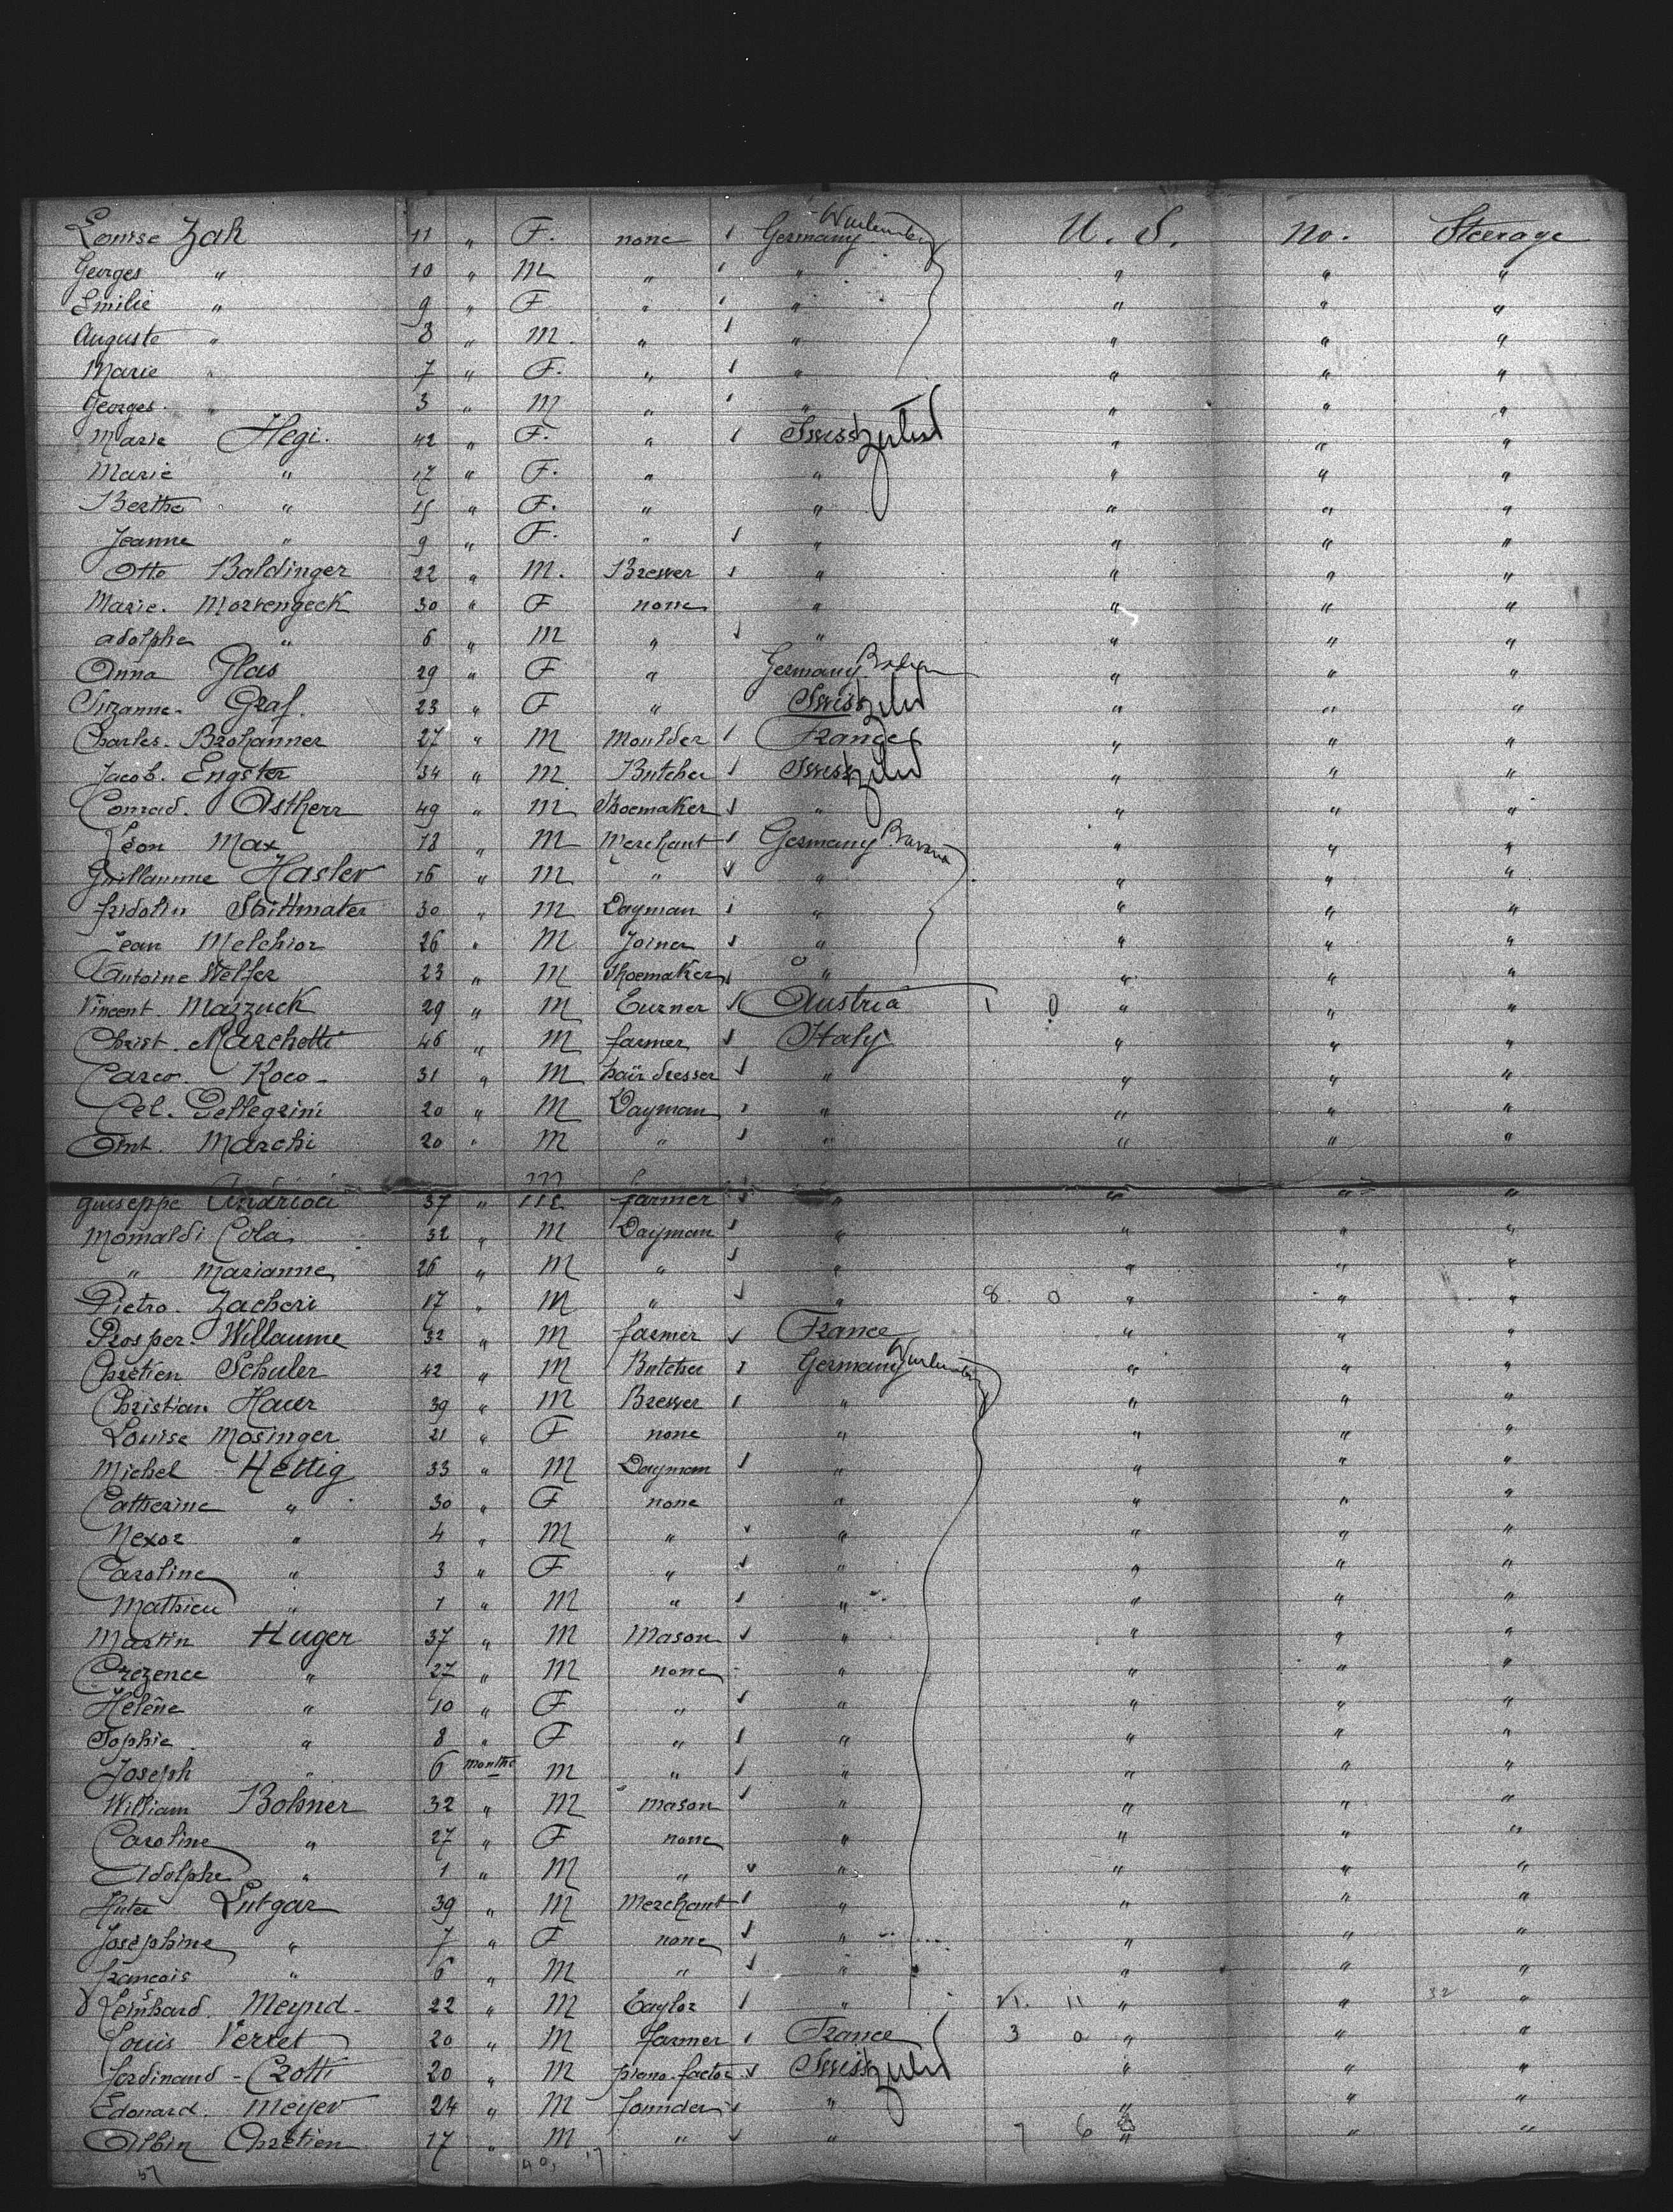 Louise Zah 11 " F. none Germany Wurtemberg U. S. no. Steerage
Georges " 10 " M " " " " "
Emilie " 9 " F " " " " "
Auguste " 8 " M. " " " " "
Marie " 7 " F. " " " " "
Georges " 3 " M " " " " "
Marie Hegi. 42 " F. " Swisszerland " " "
Marie " 17 " F. " " " " "
Berthe " 15 " F. " " " " "
Jeanne " 9 " F. " " " " "
Otto Baldinger 22 " M. Brewer " " " "
Marie. Morvengeck 30 " F none " " " "
adolphe " 6 " M " " " " "
Anna Glas 29 " F " Germany Baden " " "
Suzanne. Graf. 23 " F " Swiss " " "
Charles. Brohanner 27 " M Moulder France " " "
Jacob. Engster 34 " M Butcher Swiss " " "
Conrad. Astherr 49 " M Shoemaker " " " "
Léon Max 18 " M Merchant Germany Bavaria " " "
Guillaume Hasler 16 " M " " " " "
fridolin Strittmater 30 " M Dayman " " " "
Jean Melchior 26 " M Joiner " " " "
Antoine Welfer 23 " M Shoemaker " " " "
Vincent. Mazzuck 29 " M Turner Austria 1 0 " " "
Christ. Marchetti 46 " M farmer Italy " " "
Carco. Roco 31 " M hair dresser " " " "
Cel. Pellegrini 20 " M Dayman " " " "
Ant. Marchi 20 " M " " " " "
Guiseppe Andrioli 37 " M farmer " " " "
Momaldi Cola 32 " M Dayman " " " "
" Marianne 26 " M " " " " "
Pietro. Zacheri 17 " M " " 8 0 " " "
Prosper. Willaume 32 " M farmer France " " "
Chrétien Schuler 42 " M Butcher Germany Wurtemberg " " "
Christian Hauer 39 " M Brewer " " " "
Louise Mosinger 21 " F none " " " "
Michel Hettig 33 " M Dayman " " " "
Catherine " 30 " F none " " " "
Nexor " 4 " M " " " " "
Caroline " 3 " F " " " " "
Mathieu " 1 " M " " " " "
Martin Huger 37 " M Mason " " " "
Crezence " 27 " M none " " " "
Helène " 10 " F " " " " "
Sophie " 8 " F " " " " "
Joseph " 6 months M " " " " "
William Bohner 32 " M mason " " " "
Caroline " 27 " F none " " " "
Adolphe " 1 " M " " " " "
Lutgar 39 " M Merchant " " " "
Josephine " 7 " F none " " " "
francois " 6 " M " " " " "
Leinhard. Meynd 22 " M Taylor " 11 " " 32 "
Louis Verret 20 " M Farmer France 3 0 " " "
Ferdinand - Crotti 20 " M piano-factor Swiss " " "
Edouard. Meyer 24 " M founder " " " "
Albin Chrétien 17 " M " " 7 6 " " "
57 40, 17